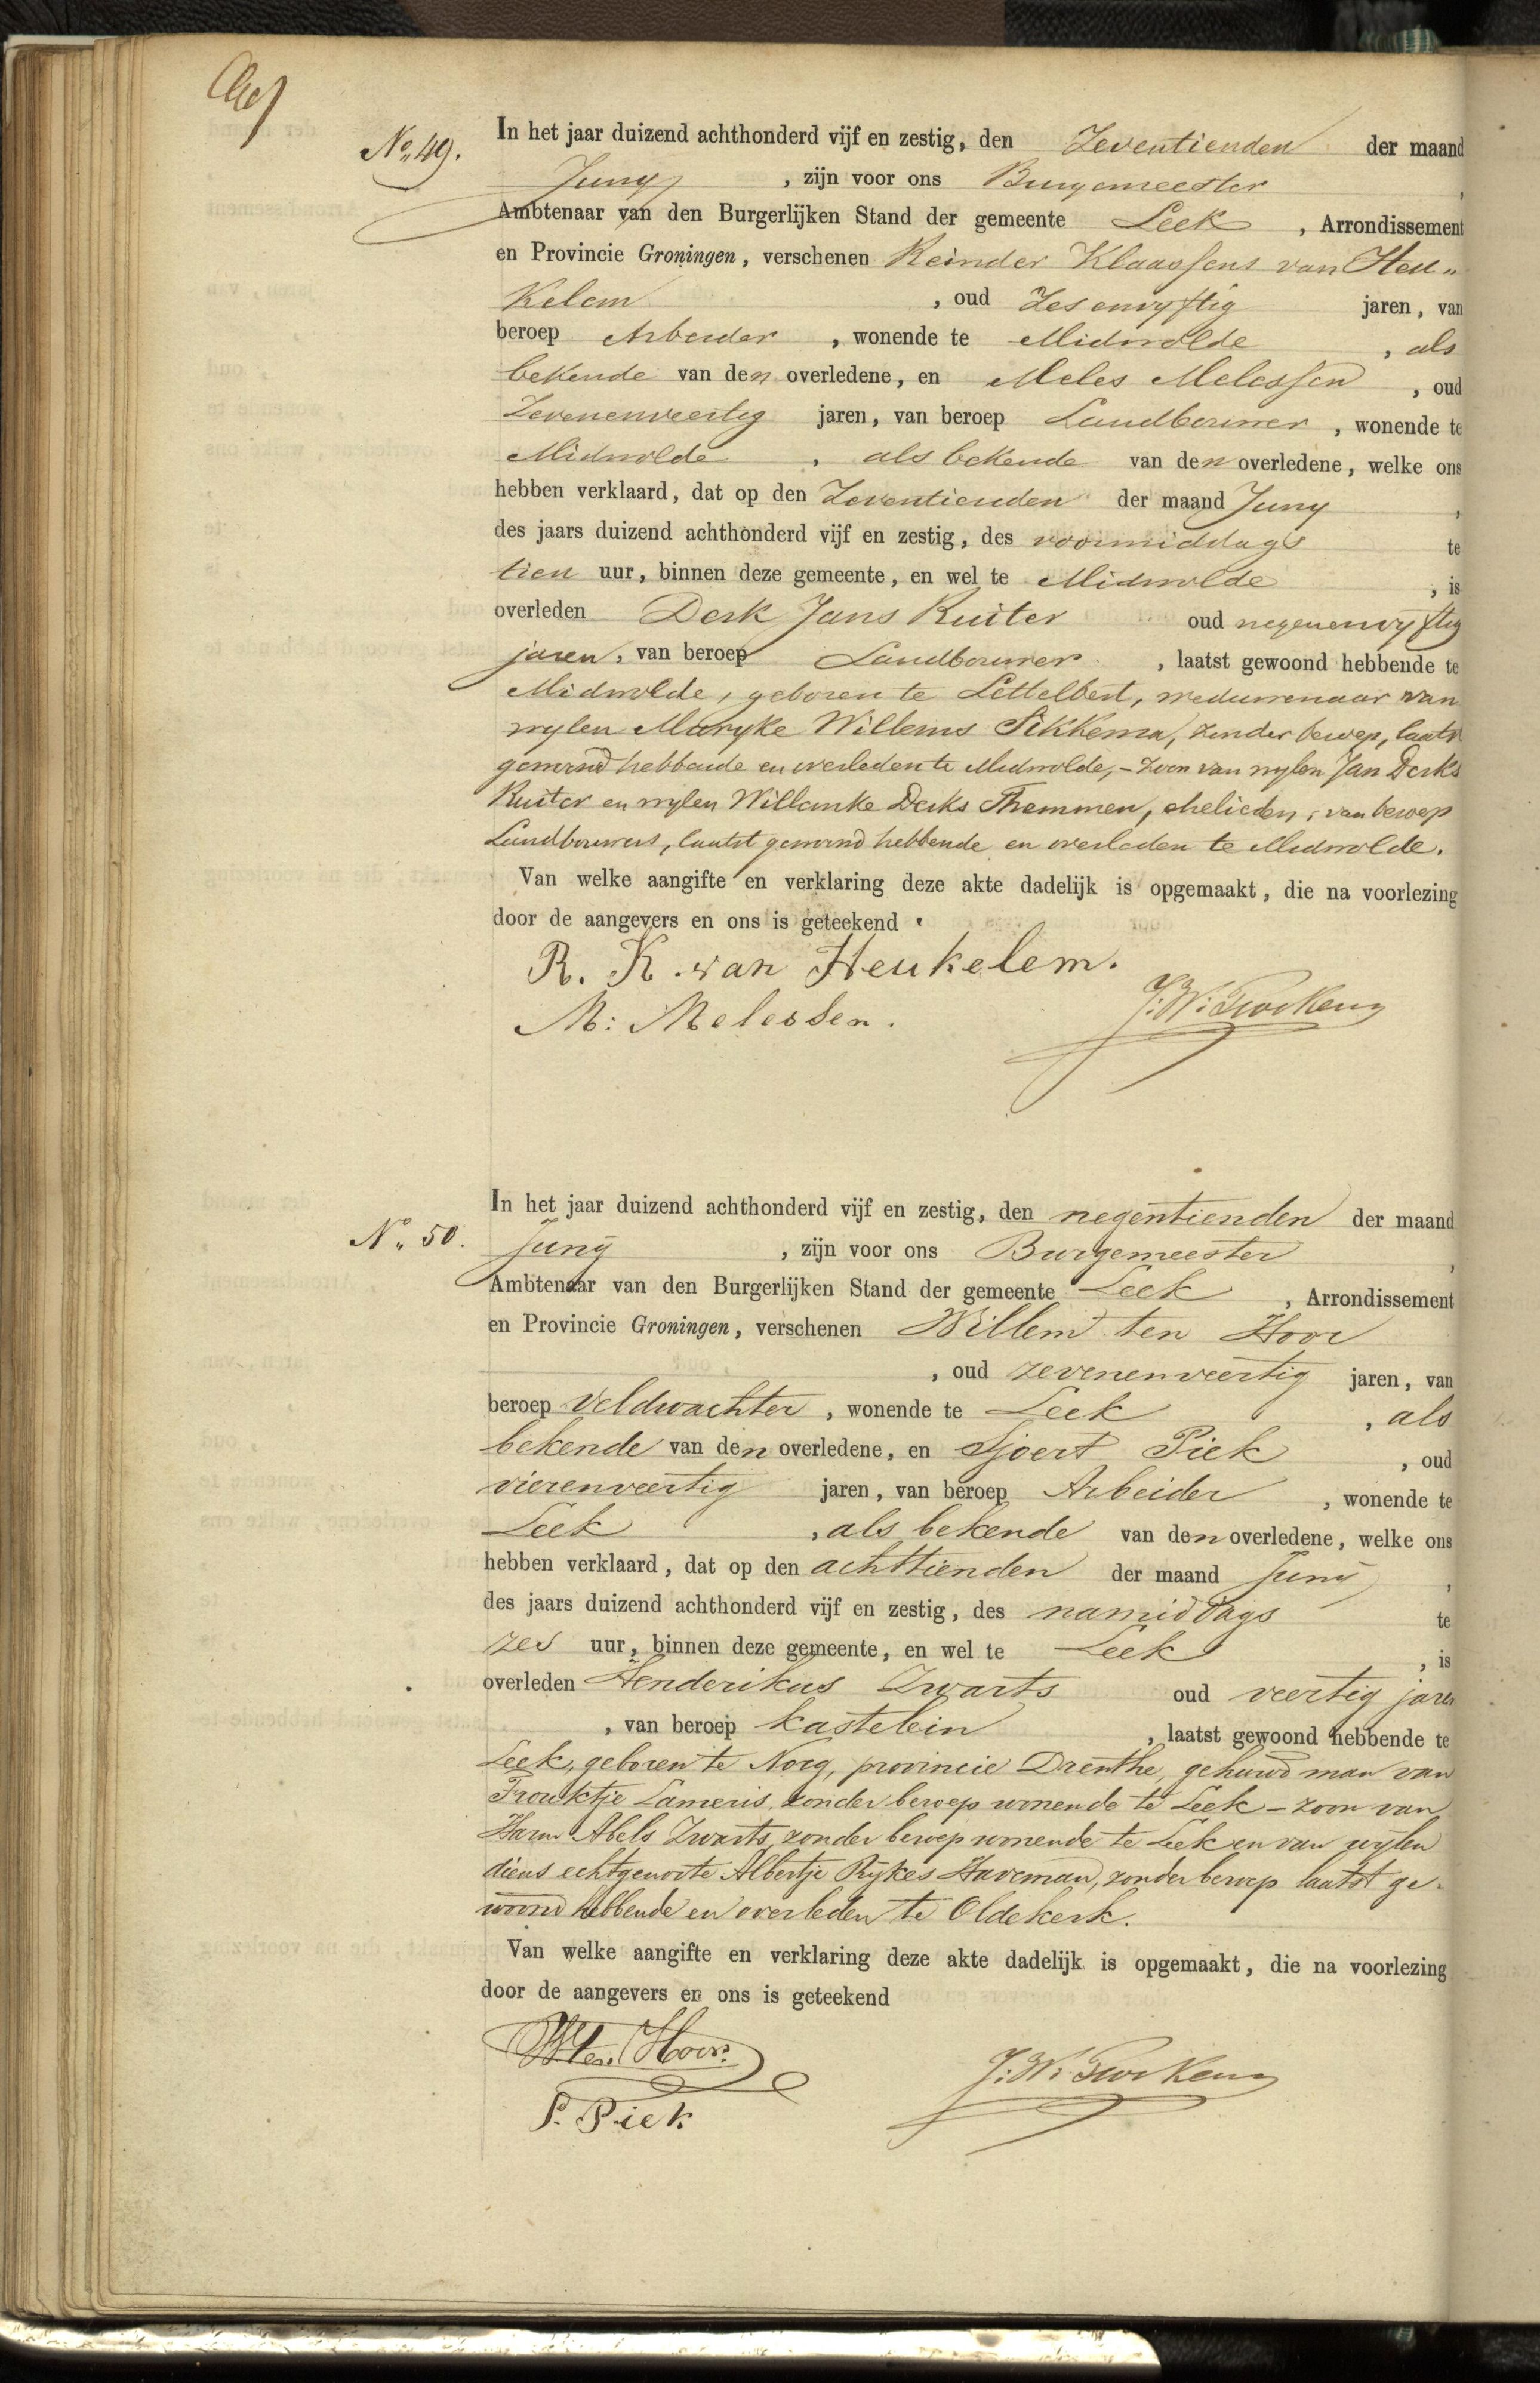 No. 49.
In het jaar duizend achthonderd vijf en zestig, den Zeventienden der maand
Juny, zijn voor ons Burgemeester,
Ambtenaar van den Burgerlijken Stand der gemeente Leek, Arrondissement
en Provincie Groningen, verschenen Reinder Klaassens van Heu„
kelem, oud Zesenvyftig jaren, van
beroep Arbeider, wonende te Midwolde, als
bekende van den overledene, en Meles Melessen, oud
Zevenenveertig jaren, van beroep Landbouwer, wonende te
Midwolde, als bekende van den overledene, welke ons
hebben verklaard, dat op den Zeventienden der maand Juny,
des jaars duizend achthonderd vijf en zestig, des voormiddags te
tien uur, binnen deze gemeente, en wel te Midwolde, is
overleden Derk Jans Ruiter oud negenenvyftig
jaren, van beroep Landbouwer, laatst gewoond hebbende te
Midwolde, geboren te Lettelbert, weduwenaar van
wylen Maryke Willems Sikkema, zonder beroep, laatst
gewoond hebbende en overleden te Midwolde, - Zoon van wylen Jan Derks
Ruiter en wylen Willemke Derks Themmen, ehelieden, van beroep
Landbouwers, laatst gewoond hebbende en overleden te Midwolde.
Van welke aangifte en verklaring deze akte dadelijk is opgemaakt, die na voorlezing
door de aangevers en ons is geteekend.
R. K. van Heukelem.
M: Melessen.
No. 50.
In het jaar duizend achthonderd vijf en zestig, den negentienden der maand
Junÿ, zijn voor ons Burgemeester,
Ambtenaar van den Burgerlijken Stand der gemeente Leek, Arrondissement
en Provincie Groningen, verschenen Willem ten Hoor
, oud zevenenveertig jaren, van
beroep veldwachter, wonende te Leek, als
bekende van den overledene, en Sjoert Piek, oud
vierenveertig jaren, van beroep Arbeider, wonende te
Leek, als bekende van den overledene, welke ons
hebben verklaard, dat op den achttienden der maand Junÿ,
des jaars duizend achthonderd vijf en zestig, des namiddags te
zes uur, binnen deze gemeente, en wel te Leek, is
overleden Henderikus Zwarts oud veertig jaren
, van beroep kastelein, laatst gewoond hebbende te
Leek, geboren te Norg, provincie Drenthe, gehuwd man van
Trouktje Lameris, zonder beroep wonende te Leek - zoon van
Harm Abels Zwarts, zonder beroep wonende te Leek en van wijlen
diens echtgenoote Albertje Rijkes Haveman, zonder beroep laatst ge-
woond hebbende en overleden te Oldekerk.
Van welke aangifte en verklaring deze akte dadelijk is opgemaakt, die na voorlezing
door de aangevers en ons is geteekend
W ten Hoor.
S. Piek